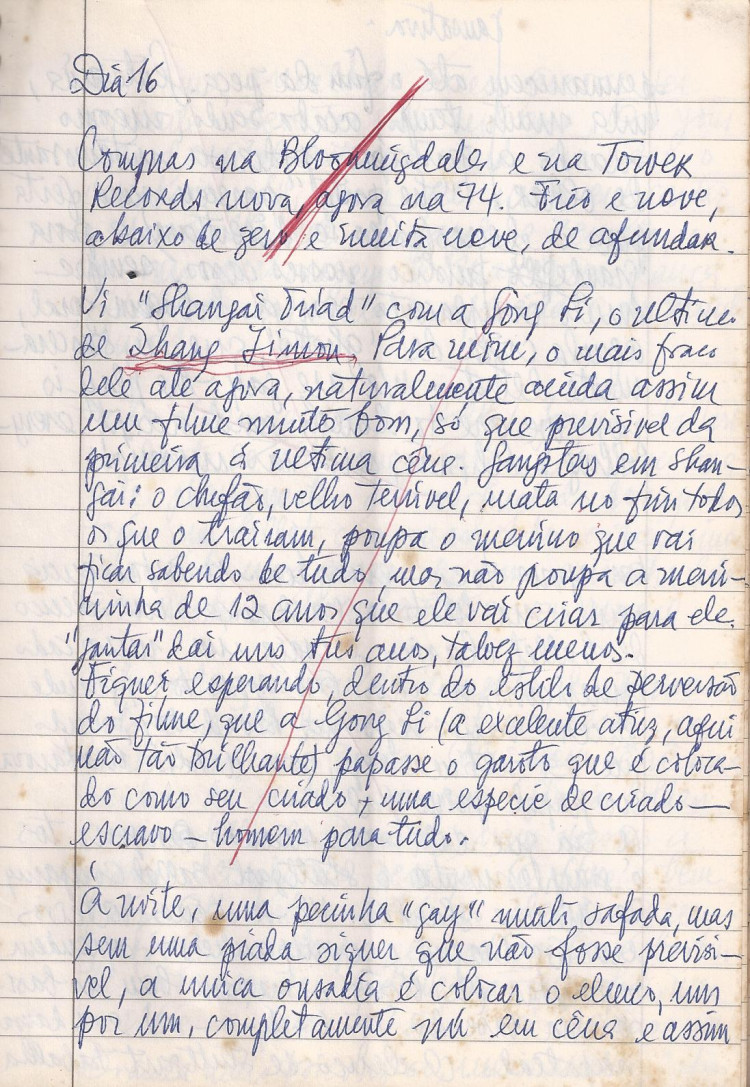 Dia 16
Compras na Bloomingdales e na Tower
Records nova, agora na 74. Frio e neve,
abaixo de zero e muita neve, de afundar.
Vi "Shangai Triad" com a Gong Li, o ultimo
de Zhang Yimou. Para mim, o mais fraco
dele até agora, naturalmente ainda assim
um filme muito bom, só que previsivel da
primeira á ultima cêne. Gangsters em Shan-
gai: o chefão, velho terrivel, mata no fim todos
os que o trairam, poupa o menino que vai
ficar sabendo de tudo, mas não poupa a meni-
ninha de 12 anos que ele vai criar para ele
"jantar" dai uns tres anos, talvez menos.
Fiquei esperando, dentro do estilo de perversão
do filme, que a Gong Li (a excelente atriz, aqui
não tão brilhante) papasse o garoto que é coloca-
do como seu criado + uma especie de criado—
escravo — homem para tudo.
Á noite, uma pecinha "gay" muito safada, mas
sem uma piada siquer que não fosse previsi-
vel, a unica ousadia é colocar o elenco, um
por um, completamente nú em cêna e assim